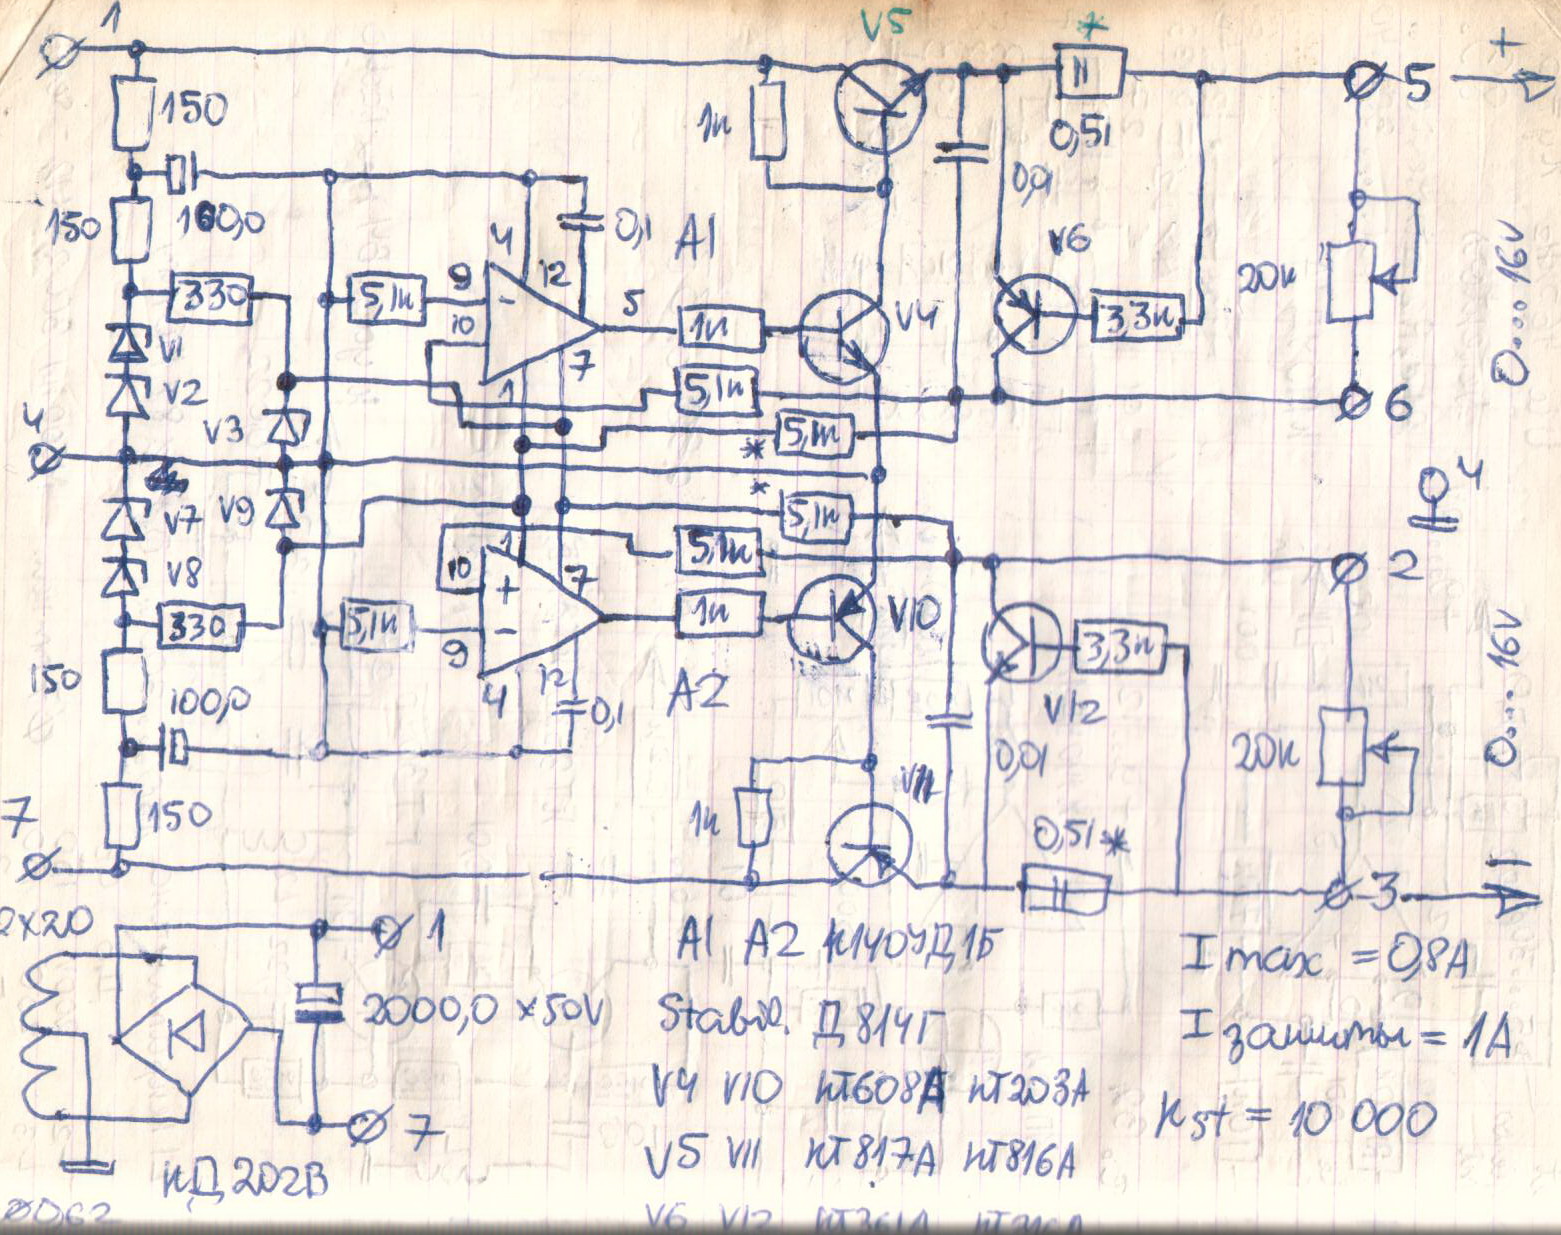 1
V5
*
150
1к
0,51
5
+
150
100,0
4
0,1
A1
0,01
V6
20к
0....16V
330
5,1к
9
-
12
10
5
1к
V4
3,3к
V1
V2
7
1
5,1к
6
4
V3
5,1к
*
*
V7
V9
5,1к
4
V8
10
1
7
5,1к
2
+
330
5,1к
-
9
1к
V10
3,3к
150
100,0
4
12
0,1
A2
V12
0....16V
0,01
20к
7
150
1к
V11
0,51*
3
2x20
1
A1 A2 К140УД1Б
I max = 0,8A
2000,0 x50V
Stabil. Д814Г
I защиты = 1A
V4 V10 КТ608А КТ203А
Kst = 10 000
7
V5 V11 КТ817А КТ816А
КД202В
V6 V12 КТ361А